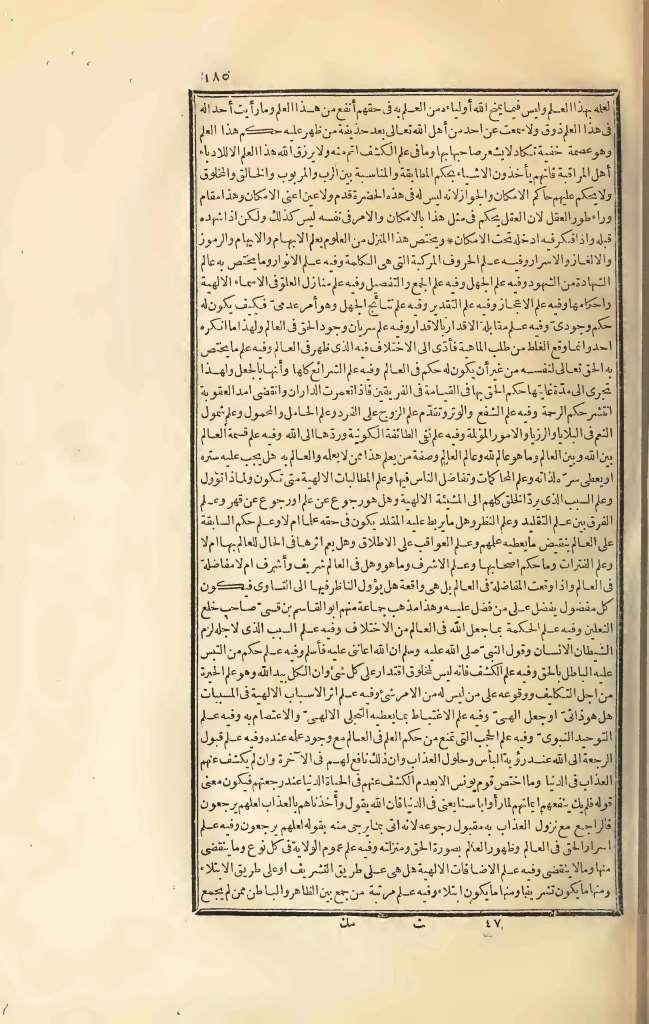 ١٨٥
لعلمه بهذا العلم وليس فيما يمنح الله أولياءه من العلم به في حقهم أنفع من هذا العلم وما رأيت أحدا له
في هذا العلم ذوق ولا سمعت عن احد من أهل الله تعالى بعد حذيفة من ظهر عليه حكم هذا العلم
وهو عصمة خفية تكاد لا يشعر صاحبها بها وما في علم الكشف اتم منه ولا يرزق الله هذا العلم الا للادباء
أهل المراقبة فانهم يأخذون الاشياء بحكم المطابقة والمناسبة بين الرب والمربوب والخالق والمخلوق
ولا يحكم عليهم حاكم الامكان والجواز لانه ليس له في هذه الحضرة قدم ولا عين اعنى الامكان وهذا مقام
وراء طور العقل لان العقل يحكم في مثل هذا بالامكان والامر في نفسه ليس كذلك ولكن اذا شهده
قبله واذا فكر فيه ادخله تحت الامكان * ويختص هذا المنزل من العلوم بعلم الابهام والايهام والرموز
والالغاز والاسرار وفيه علم الحروف المركبة التى هى الكلمة وفيه علم الانوار وما يختص به عالم
الشهادة من الشهود وفيه علم الجهل وفيه علم الجمع والتفصيل وفيه علم منازل العلو في الاسماء الالهية
واحكامها وفيه علم الاعجاز وفيه علم التقدير وفيه علم نتائج الجهل وهو أمر عدمى فكيف يكون له
حكم وجودى وفيه علم مقابلة الاقدار بالاقدار وفيه علم سريان وجود الحق في العالم ولهذا ما انكره
احد وانما وقع الغلط من طلب الماهية فأدى الى الاختلاف فيه الذى ظهر فى العالم وفيه علم ما يختص
به الحق تعالى لنفسه من غير أن يكون له حكم في العالم وفيه علم الشرائع كلها وأنها بالجعل ولهذا
تجرى الى مدة غايتها حكم الحق بها في القيامة في الفريقين فاذا تعمرت الداران وانقضى امد العقوبة
انتشر حكم الرحمة وفيه علم الشفع والوتر وتقدم علم الزوج على الفرد وعلم الحامل والمحمول وعلم شمول
النعم في البلايا والرزايا والامور المؤلمة وفيه علم نفى الطاقة الكونية وردّها الى الله وفيه علم قسمة العالم
بين الله وبين العالم وما هو عالم لله وعالم العالم وصفة من يعلم هذا ممن لا يعلمه والعالم به هل يجب عليه ستره
او يعطى سرّه لذاته وعلم المحاكمات وتفاضل الناس فيها وعلم المطالبات الالهية متى تكون ولماذا تؤول
وعلم السبب الذى ردّ الخلق كلهم الى المشيئة الالهية وهل هو رجوع عن علم او رجوع عن قهر وعلم
الفرق بين علم التقليد وعلم النظر وهل ما يربط عليه المقلد يكون فى حقه علما ام لا وعلم حكم السابقة
على العالم بنقيض ما يعطيه علمهم وعلم العواقب على الاطلاق وهل يعم اثرها فى الحال للعالم بها ام لا
وعلم الفترات وما حكم اصحابها وعلم الاشرف وما هو وهل فى العالم شريف وأشرف ام لا مفاضلة
فى العالم واذا وقعت المفاضلة فى العالم بل هى واقعة هل يؤول الناظر فيها الى التساوى فيكون
كل مفضول يفضل على من فضل عليه وهذا مذهب جماعة منهم ابو القاسم بن قسى صاحب خلع
النعلين وفيه علم الحكمة بما جعل الله فى العالم من الاختلاف وفيه علم السبب الذى لاجله لزم
الشيطان الانسان وقول النبى صلى الله عليه وسلم ان الله اعاننى عليه فأسلم وفيه علم حكم من التبس
عليه الباطل بالحق وفيه علم الكشف فانه ليس لمخلوق اقتدار على كل شئ وان الكل بيد الله وهو علم الحيرة
من اجل التكليف ووقوعه على من ليس له من الامر شئ وفيه علم اثر الاسباب الالهية فى المسببات
هل هو ذاتى او جعل الهى وفيه علم الاغتباط بما يعطيه التجلى الالهى والاعتصام به وفيه علم
التوحيد النبوى وفيه علم الحجب التى تمنع من حكم العلم فى العالم مع وجود علمه عنده وفيه علم قبول
الرجعة الى الله عند رؤية البأس وحلول العذاب وان ذلك نافع لهم فى الآخرة وان لم يكشف عنهم
العذاب فى الدنيا وما اختص قوم يونس الا بعدم الكشف عنهم فى الحياة الدنيا عند رجعتهم فيكون معنى
قوله فلم يك ينفعهم ايمانهم لما رأوا باسنا يعنى فى الدنيا فان الله يقول وأخذناهم بالعذاب لعلهم يرجعون
فالراجع مع نزول العذاب به مقبول رجوعه لانه اتى بما يرجى منه بقوله لعلهم يرجعون وفيه علم
اسرار الحق فى العالم وظهور العالم بصورة الحق ومنزلته وفيه علم عموم الولاية فى كل نوع وما ينقضى
منها وما لا ينقضى وفيه علم الاضافات الالهية هل هى على طريق التشريف او على طريق الابتلاء
ومنها ما يكون تشريفا ومنها ما يكون ابتلاء وفيه علم مرتبة من جمع بين الظاهر والباطن ممن لم يجمع
٤٧ ث مك